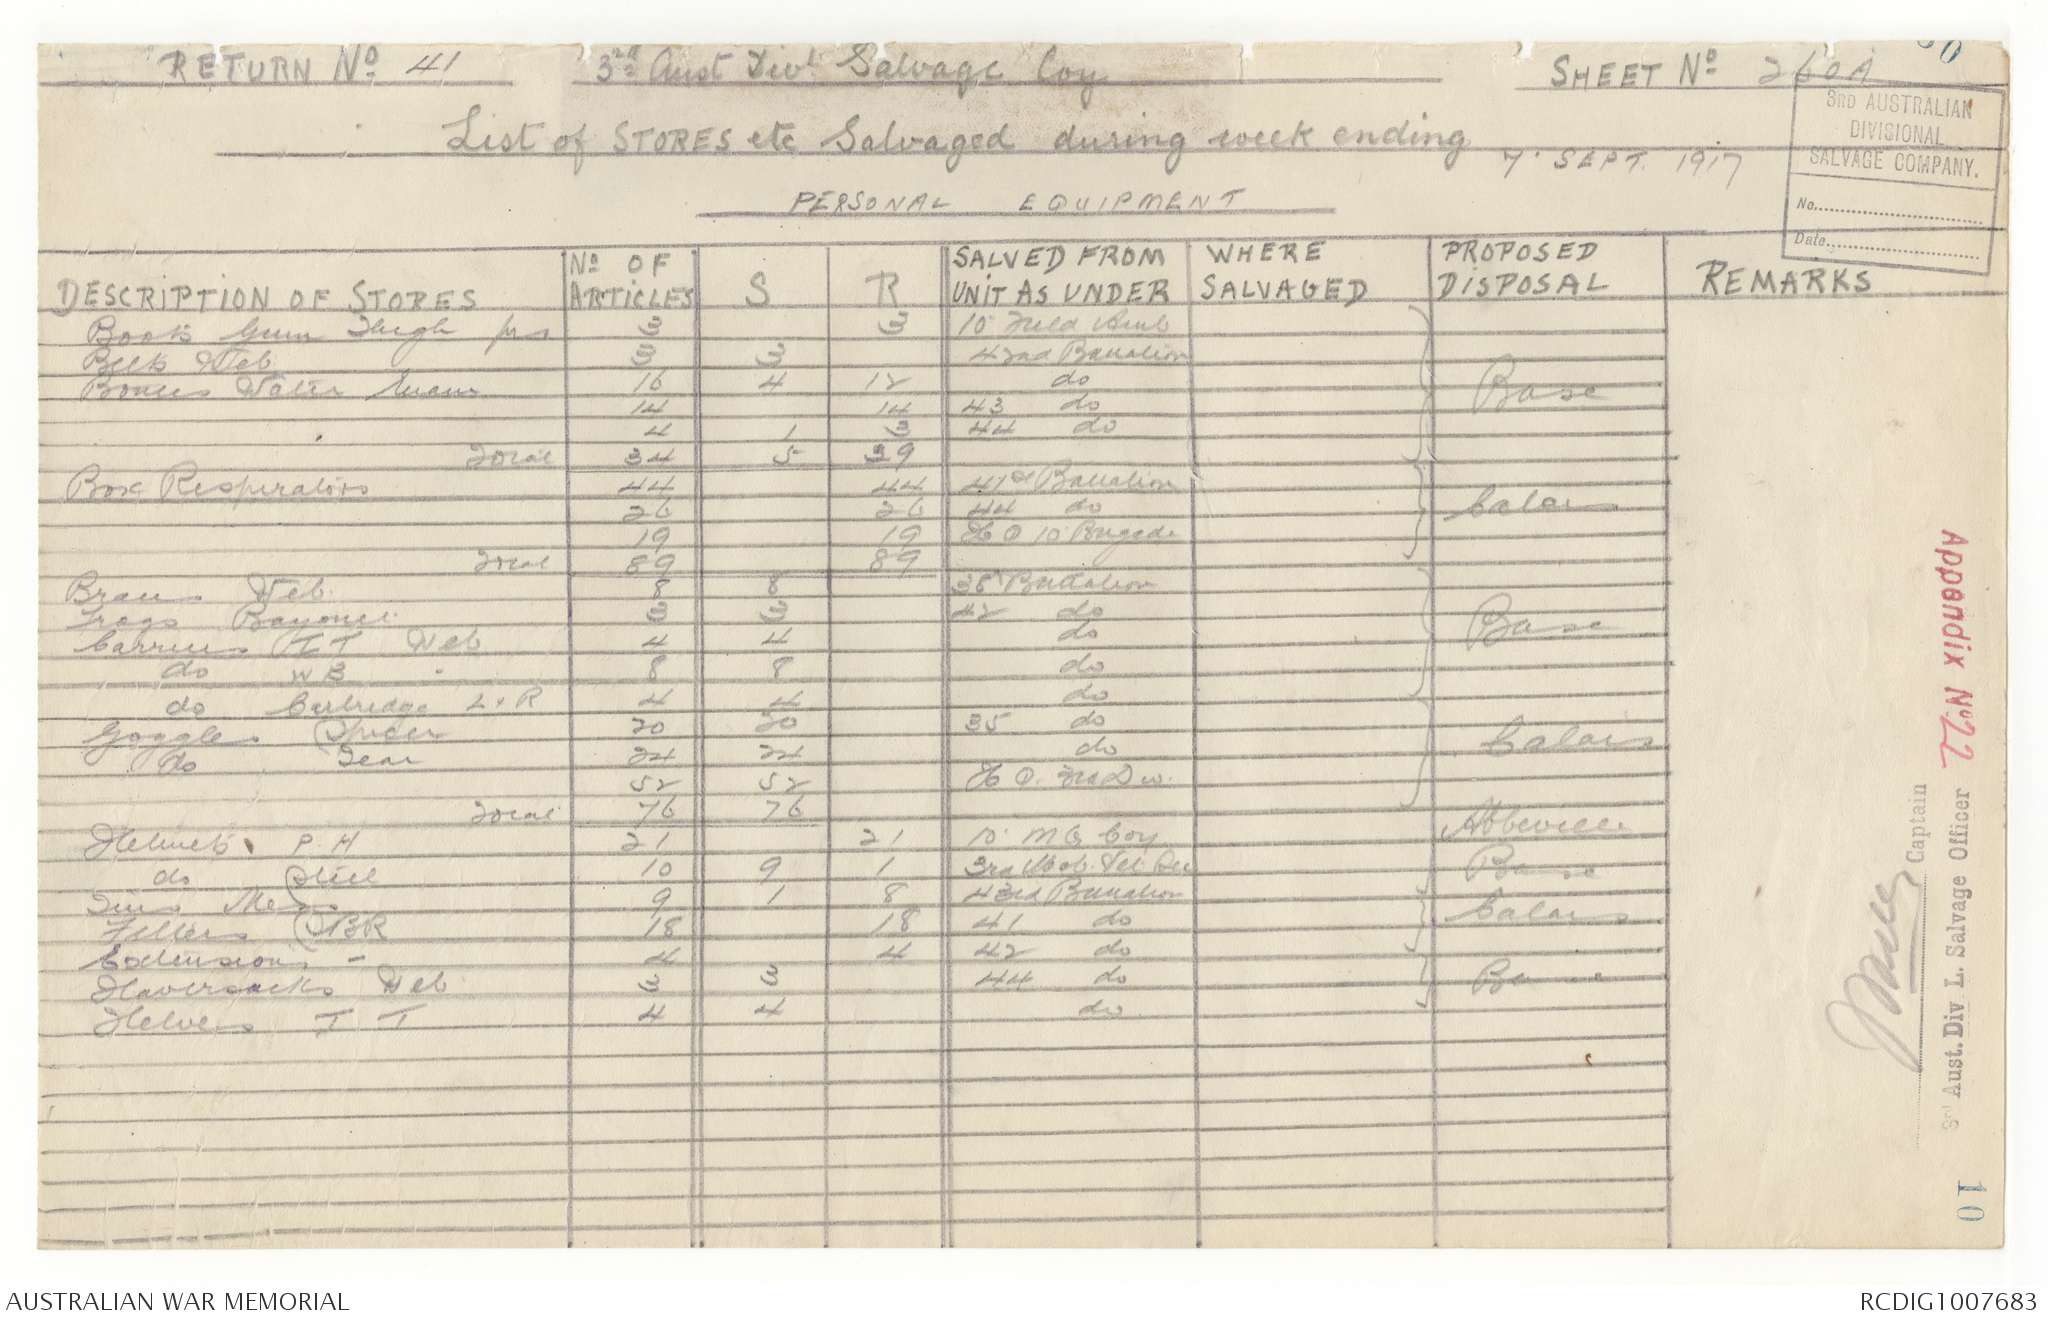 RETURN No 41 3rd Aust Divl Salvage Coy SHEET No 260A
3RD AUSTRALIAN
DIVISIONAL
SALVAGE COMPANY.
No.
Date
List of STORES etc Salvaged during week ending 7 SEPT. 1917
PERSONAL EQUIPMENT
DESCRIPTION OF STORES No OF ARTICLES S R SALVED FROM UNIT AS UNDER WHERE SALVAGED PROPOSED DISPOSAL REMARKS
Boots Gum Thigh prs 3 3 10 Field Amb
Belts Web 3 3 42nd Battalion
Bottles Water Enam 16 4 12 do Base
14 14 43 do
4 1 3 44 do
Total 34 5 29
Box Respirators 44 44 41st Battalion
26 26 44 do Calais
19 19 H Q 10 Brigade
Total 89 89
Braces Web 8 8 38 Battalion
Frogs Bayonet 3 3 42 do Base
Carriers I T Web 4 4 do
do W B 8 8 do
do Cartridge L & R 4 4 do
Goggles Spicer 20 20 35 do Calais
do Tear 24 24 do
52 52 H Q. 3rd Div.
Total 76 76
Helmets P H 21 21 10 M G Coy Abbeville
do Steel 10 9 1 3rd Mob. Vet. Sec Base
Tins Mess 9 1 8 43rd Battalion
Fillers SBR 18 18 41 do Calais
Extensions - 4 4 42 do
Haversacks Web 3 3 44 do Base
Helves I T 4 4 do
Appendix No 22
Captain
3rd Aust. Div L. Salvage Officer
10
AUSTRALIAN WAR MEMORIAL RCDIG1007683